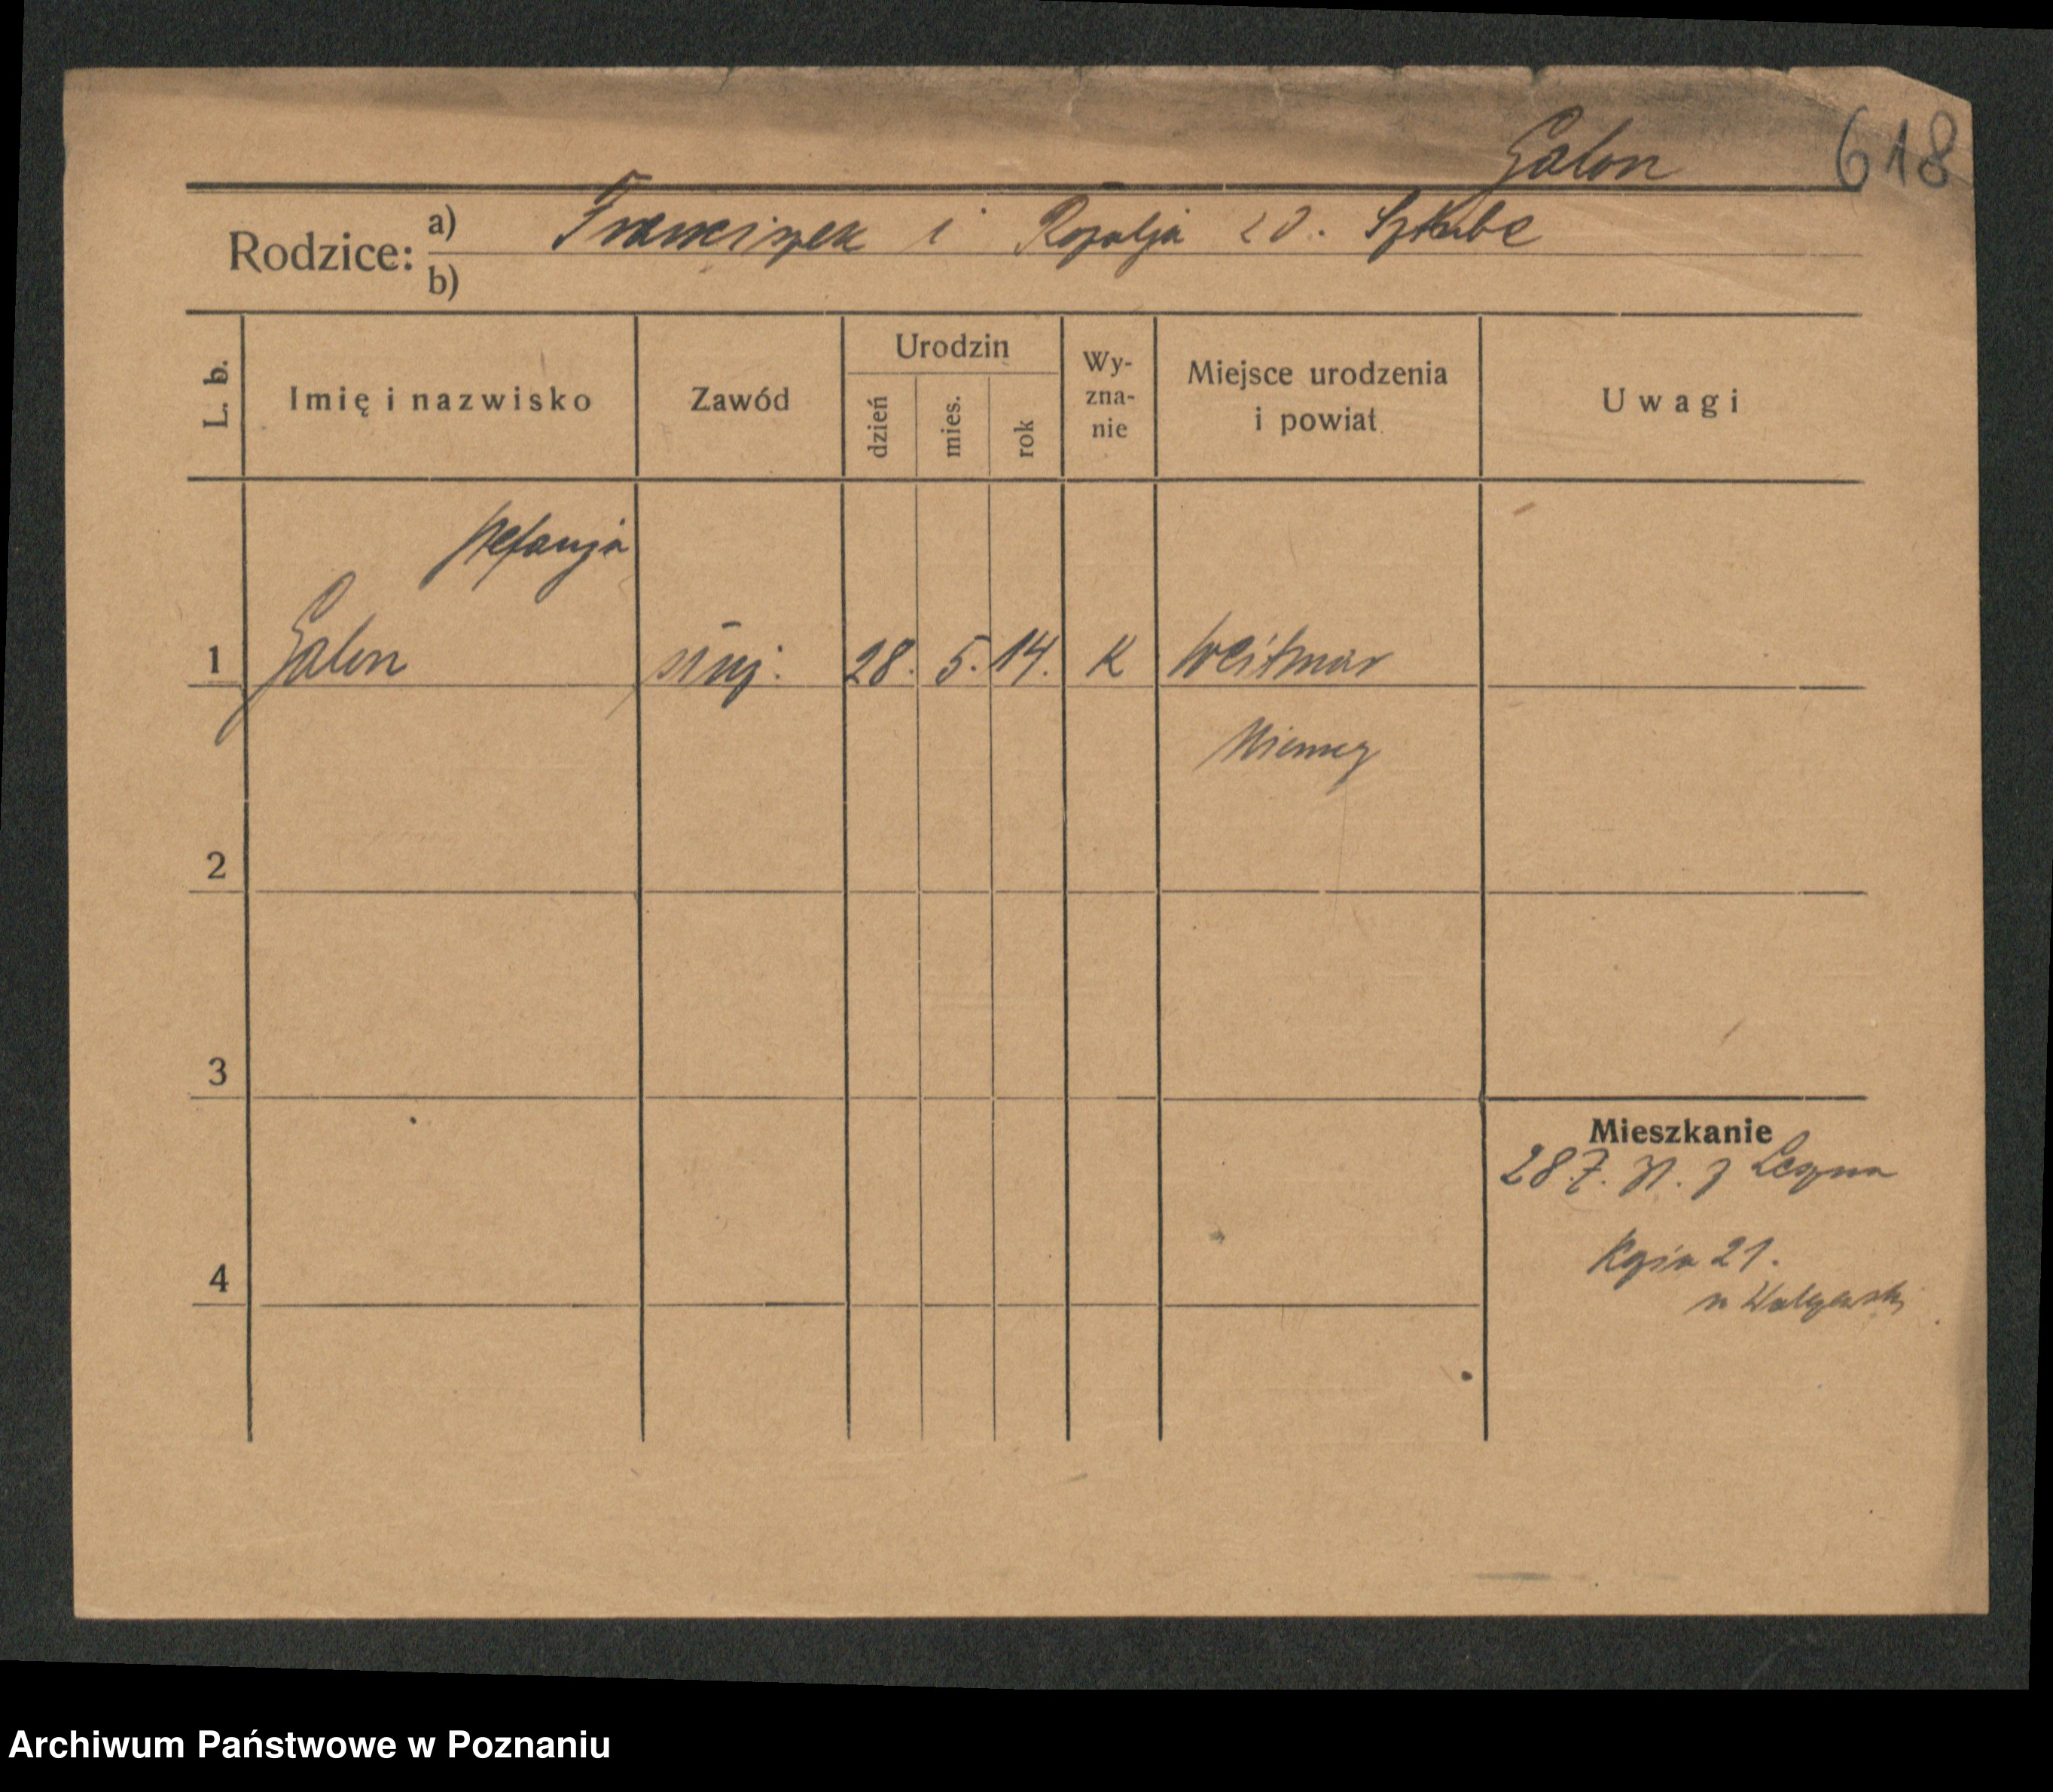 Galon 618
Rodzice: a) Franciszek i Rozalja z d. Szkube
b)
L. b.
Imię i nazwisko
Zawód
Urodzin
dzień
mies.
rok
Wy-
zna-
nie
Miejsce urodzenia
i powiat
Uwagi
Stefanja
1 Galon służ. 28. 5. 14. K Weitmar
Niemcy
2
3
4
Mieszkanie
28.7. z Leszna
21.
Archiwum Państwowe w Poznaniu